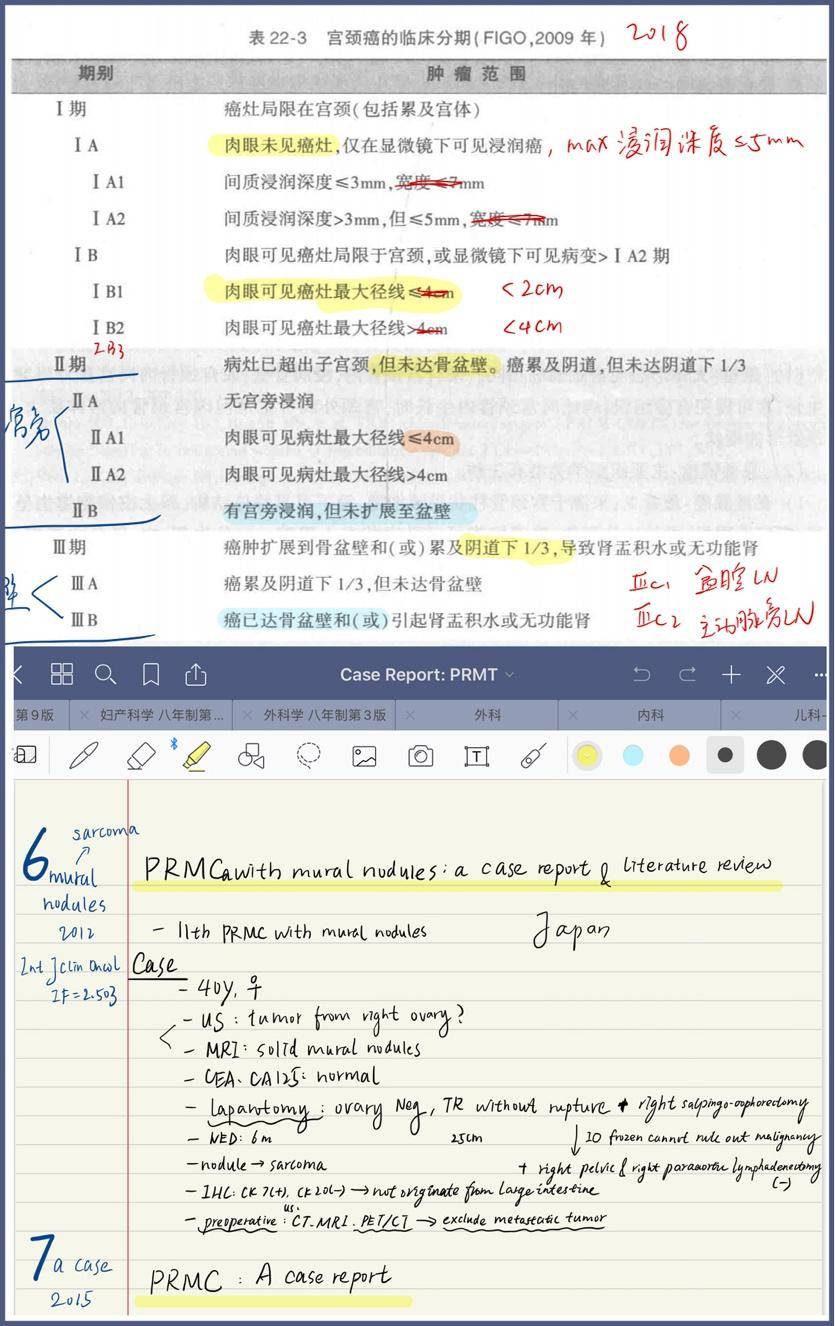 表 22-3 宫颈癌的临床分期(FIGO,2009 年) 2018
期别 肿瘤范围
Ⅰ期 癌灶局限在宫颈(包括累及宫体)
ⅠA 肉眼未见癌灶,仅在显微镜下可见浸润癌, max 浸润深度≤5mm
ⅠA1 间质浸润深度≤3mm,宽度≤7mm
ⅠA2 间质浸润深度>3mm,但≤5mm,宽度≤7mm
ⅠB 肉眼可见癌灶局限于宫颈,或显微镜下可见病变>ⅠA2 期
ⅠB1 肉眼可见癌灶最大径线≤4cm <2cm
ⅠB2 肉眼可见癌灶最大径线>4cm <4cm
ⅠB3
Ⅱ期 病灶已超出子宫颈,但未达骨盆壁。癌累及阴道,但未达阴道下 1/3
ⅡA 无宫旁浸润
宫旁
ⅡA1 肉眼可见病灶最大径线≤4cm
ⅡA2 肉眼可见病灶最大径线>4cm
ⅡB 有宫旁浸润,但未扩展至盆壁
Ⅲ期 癌肿扩展到骨盆壁和(或)累及阴道下 1/3,导致肾盂积水或无功能肾
ⅢA 癌累及阴道下 1/3,但未达骨盆壁 ⅢC1 盆腔LN
壁
ⅢB 癌已达骨盆壁和(或)引起肾盂积水或无功能肾 ⅢC2 主动脉旁LN
Case Report: PRMT
第9版 妇产科学 八年制第... 外科学 八年制第3版 外科 内科 儿科-
6 sarcoma
mural nodules
2012
PRMCa with mural nodules: a case report & literature review
- 11th PRMC with mural nodules Japan
Int J Clin Oncol
IF=2.503
Case
- 40y, ♀
- US: tumor from right ovary?
- MRI: solid mural nodules
- CEA、CA125: normal
- laparotomy: ovary Neg, TR without rupture + right salpingo-oophorectomy
25cm
↓ IO frozen cannot rule out malignancy
- NED: 6m
+ right pelvic & right paraaortic lymphadenectomy
(-)
- nodule → sarcoma
- IHC: CK7(+), CK20(-) → not originate from large intestine
- preoperative: US. CT. MRI. PET/CT → exclude metastatic tumor
7 a case
2015
PRMC : A case report